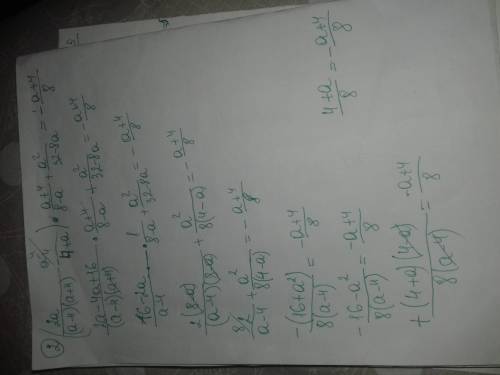 ② (2a/((a-4)(a+4)) - 4/(4+a)) · (a+4)/(8-a) + a²/(32-8a) = -(a+4)/8
(2a-4a+16)/((a-4)(a+4)) · (a+4)/(8-a) + a²/(32-8a) = -(a+4)/8
(16-2a)/(a-4) · 1/(8-a) + a²/(32-8a) = -(a+4)/8
2(8-a)/((a-4)(8-a)) + a²/(8(4-a)) = -(a+4)/8
2/(a-4) + a²/(8(4-a)) = -(a+4)/8
-(16+a²)/(8(a-4)) = -(a+4)/8
-(16-a²)/(8(a-4)) = -(a+4)/8
+ (4+a)(4-a)/(8(a-4)) = -(a+4)/8
(4+a)/8 = -(a+4)/8